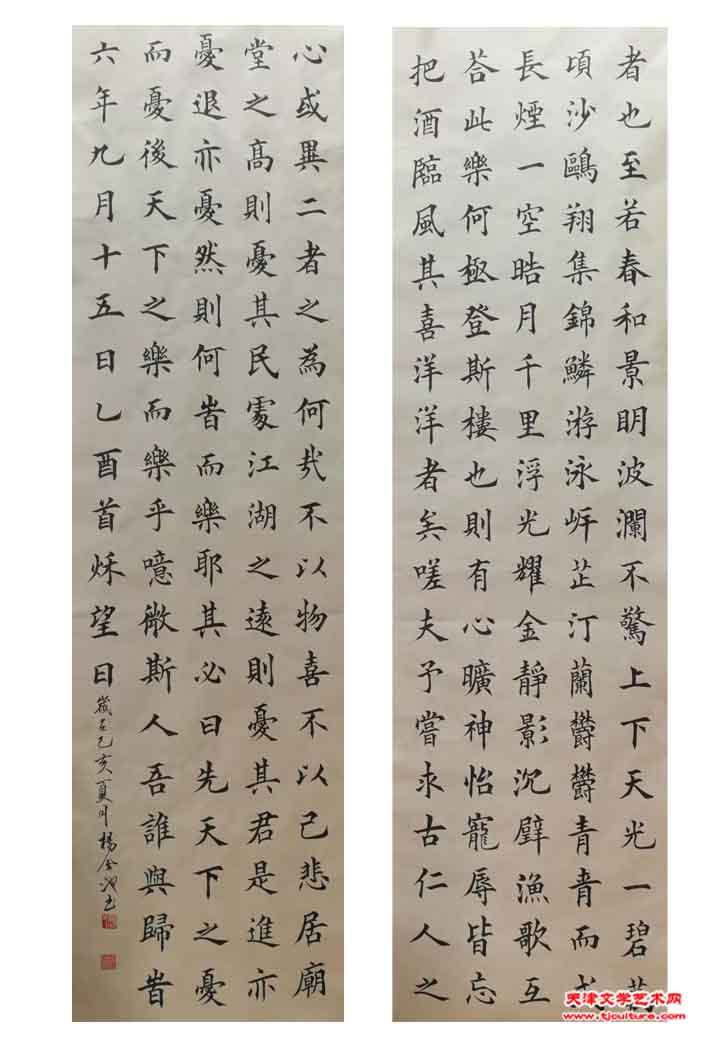 者也至若春和景明波瀾不驚上下天光一碧萬
頃沙鷗翔集錦鱗游泳岸芷汀蘭鬱鬱青青而或
長煙一空皓月千里浮光耀金靜影沉璧漁歌互
荅此樂何極登斯樓也則有心曠神怡寵辱皆忘
把酒臨風其喜洋洋者矣嗟夫予嘗求古仁人之
心或異二者之為何哉不以物喜不以己悲居廟
堂之高則憂其民處江湖之遠則憂其君是進亦
憂退亦憂然則何旹而樂耶其必曰先天下之憂
而憂後天下之樂而樂乎噫微斯人吾誰與歸旹
六年九月十五日乙酉首秌望日
歲在己亥夏月楊金書
天津文学艺术网
www.tjculture.com